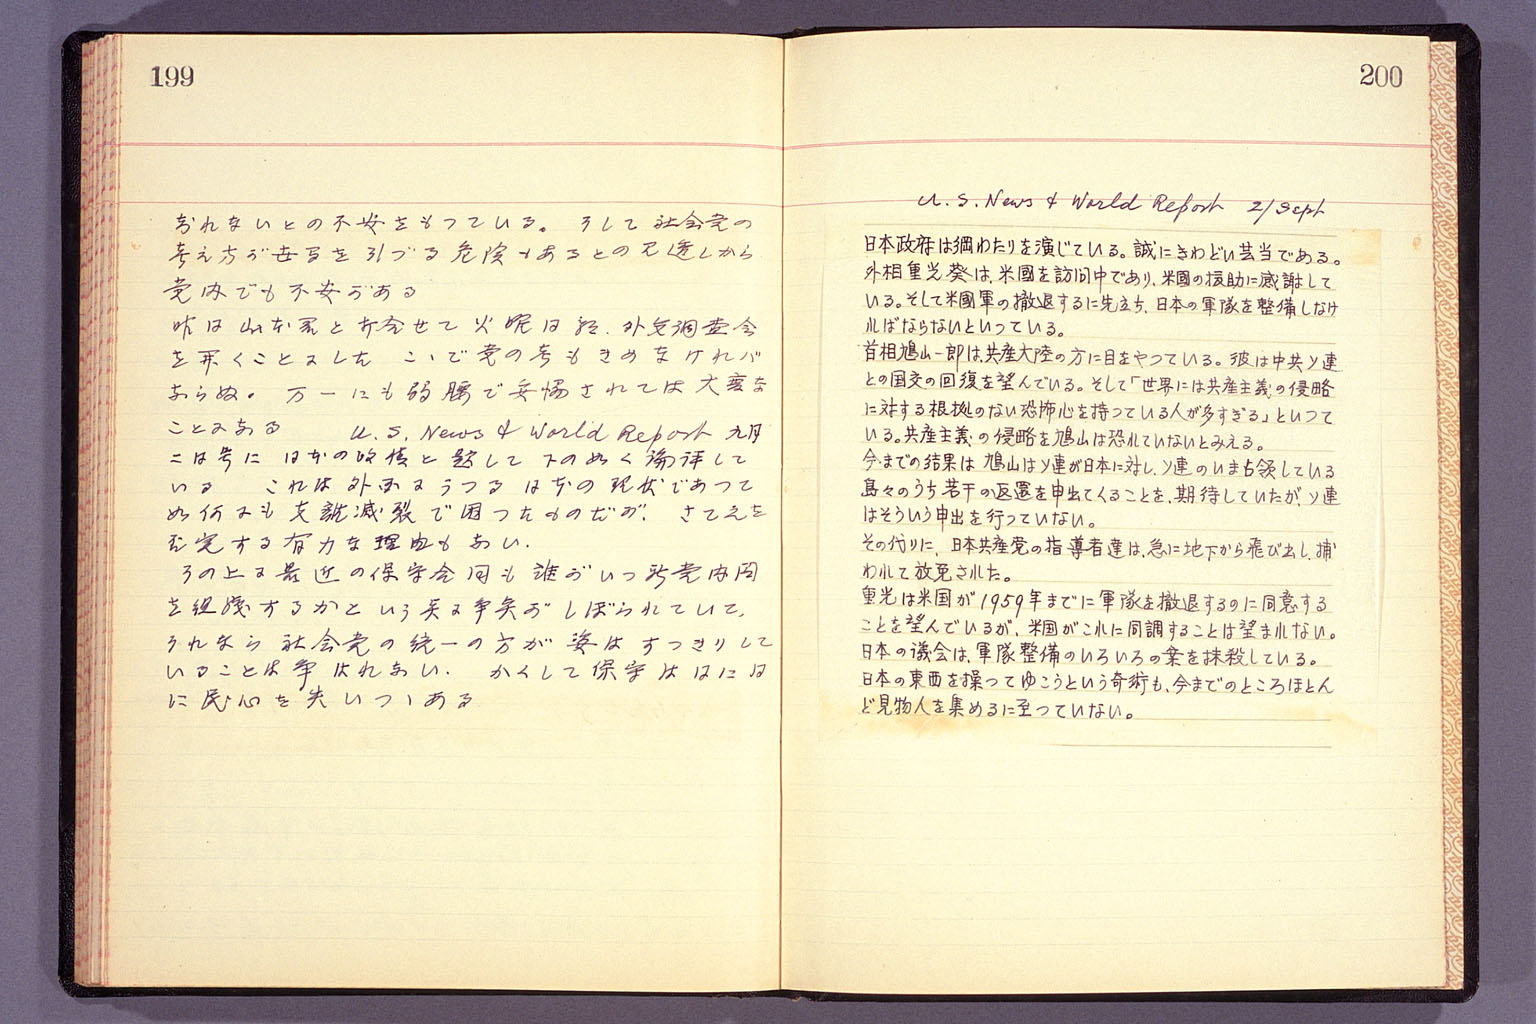 199
おれないとの不安をもつている。そして社会党の
考え方が世論を引づる危険もあるとの見透しから
党内でも不安がある
昨は山本君と打合せて火曜日 外交調査会
を開くことにした こゝで党の考もきめなければ
ならぬ。万一にも弱腰で妥協されては大変な
ことになる U.S. News & World Report 九月
二日号に 日本の政情と題して下の如く論評して
いる これは外国にうつる日本の現状であつて
如何にも支離滅裂で困つたものだが、さて之を
否定する有力な理由もない.
その上に最近の保守合同も誰がいつ新党内閣
を組織するかという点に争点がしぼられていて,
それなら社会党の統一の方が姿はすつきりして
いることは争はれない. かくして保守は日に日
に民心を失いつゝある
200
U.S. News & World Report 2/Sept
日本政府は綱わたりを演じている。誠にきわどい芸当である。
外相重光葵は、米國を訪问中であり、米國の援助に感謝して
いる。そして米國軍の撤退するに先立ち、日本の軍隊を整備しなけ
ればならないといつている。
首相鳩山一郎は、共産大陸の方に目をやつている。彼は中共ソ連
との国交の回復を望んでいる。そして「世界には共産主義の侵略
に対する根拠のない恐怖心を持つている人が多すぎる」といつて
いる。共産主義の侵略を鳩山は恐れていないとみえる。
今までの結果は、鳩山はソ連が日本に対し、ソ連のいま占領している
島々のうち若干の返還を申出てくることを、期待していたが、ソ連
はそういう申出を行っていない。
その代りに、日本共産党の指導者達は、急に地下から飛び出し、捕
われて放免された。
重光は米国が1959年までに軍隊を撤退するのに同意する
ことを望んでいるが、米国がこれに同調することは望まれない。
日本の議会は、軍隊整備のいろいろの案を抹殺している。
日本の東西を操つてゆこうという奇術も、今までのところほとん
ど見物人を集めるに至つていない。